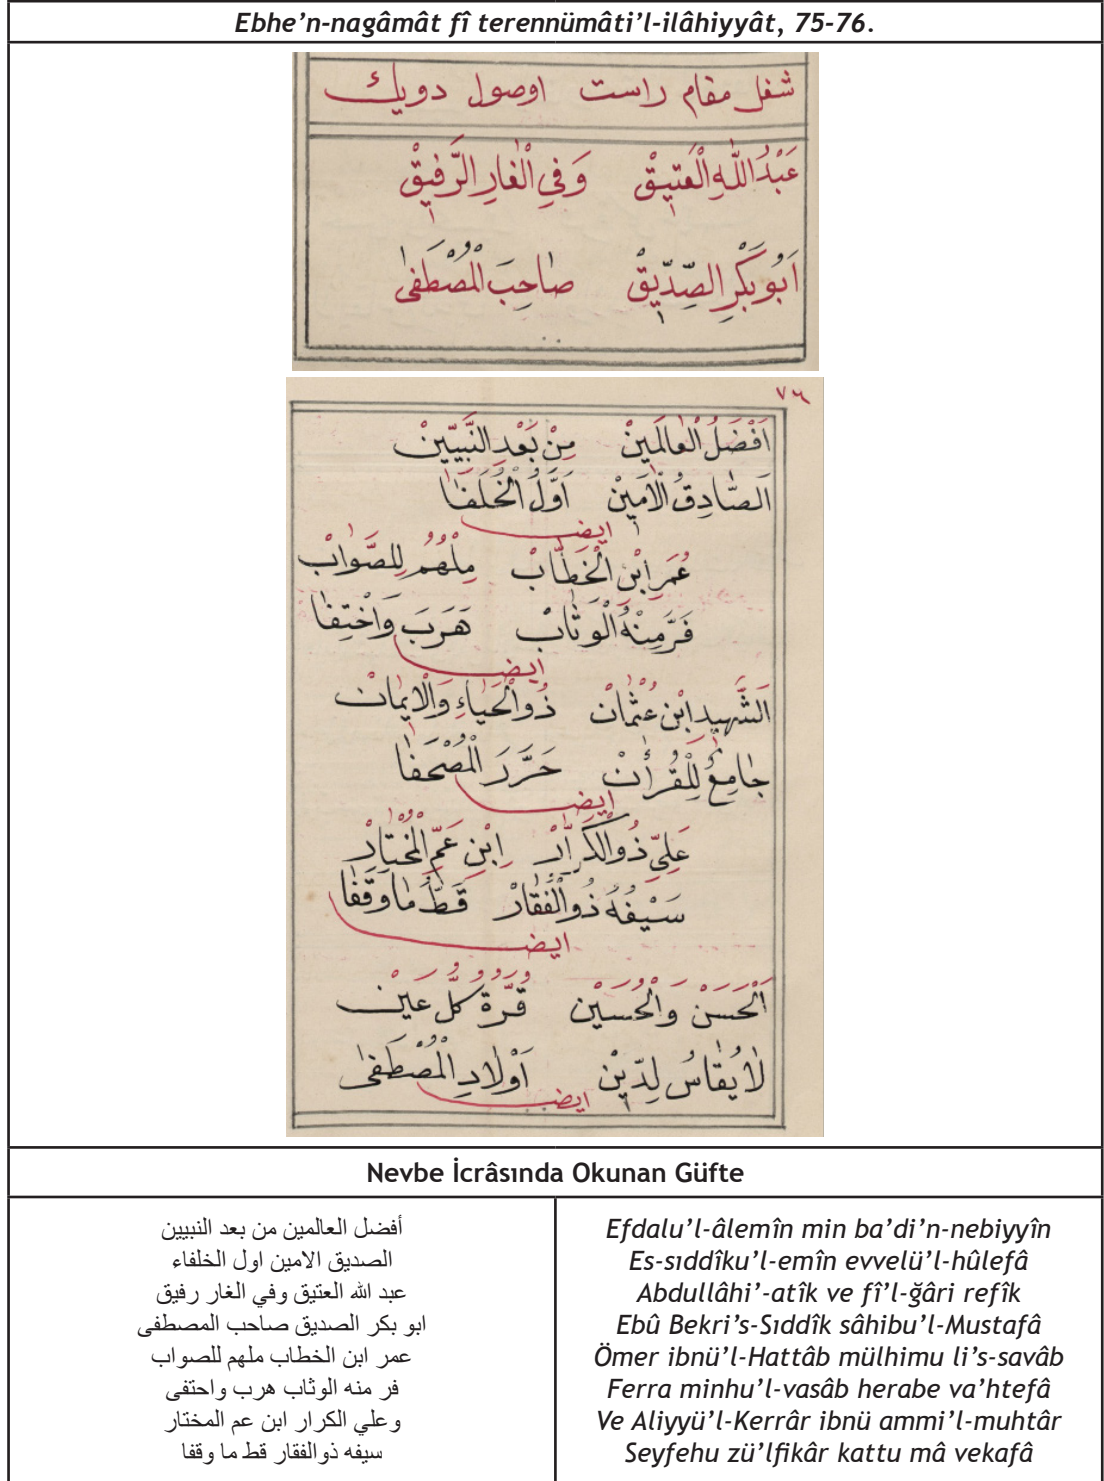 Ebhe’n-nagâmât fî terennümâti’l-ilâhiyyât, 75-76.
شغل مقام راست اوصول دويك
عَبْدُ اللّٰهِ الْعَتِيقْ وَفِي الْغَارِ الرَّفِيقْ
اَبُو بَكْرِ الصِّدِّيقْ صَاحِبَ الْمُصْطَفٰى
٧٦
اَفْضَلُ الْعَالَمِينْ مِنْ بَعْدِ النَّبِيِّينْ
اَلصَّادِقُ الْاَمِينْ اَوَّلُ الْخُلَفَا
ايضـ
عُمَرِ ابْنِ الْخَطَّابْ مِلْهُمُ لِلصَّوَابْ
فَرَّ مِنْهُ الْوَثَابْ هَرَبَ وَاخْتِفَا
ايضـ
اَلشَّهِيدِ ابْنِ عُثْمَانْ ذُو الْحَيَاءِ وَالْاِيمَانْ
جَامِعُ لِلْقُرْاٰنْ حَرَّرَ الْمُصْحَفَا
ايضـ
عَلِيِّ ذُو الْكَرَّارْ اِبْنِ عَمِّ الْمُخْتَارْ
سَيْفُهُ ذُو الْفَقَارْ قَطُّ مَا وَقَفَا
ايضـ
اَلْحَسَنْ وَالْحُسَيْنْ قُرَّةُ كُلِّ عَيْنْ
لَا يُقَاسُ لِدَيْنْ اَوْلَادِ الْمُصْطَفٰى
ايضـ
Nevbe İcrâsında Okunan Güfte
أفضل العالمين من بعد النبيين
الصديق الامين اول الخلفاء
عبد الله العتيق وفي الغار رفيق
ابو بكر الصديق صاحب المصطفى
عمر ابن الخطاب ملهم للصواب
فر منه الوثاب هرب واحتفى
وعلي الكرار ابن عم المختار
سيفه ذوالفقار قط ما وقفا
Efdalu’l-âlemîn min ba’di’n-nebiyyîn
Es-sıddîku’l-emîn evvelü’l-hûlefâ
Abdullâhi’-atîk ve fî’l-ğâri refîk
Ebû Bekri’s-Sıddîk sâhibu’l-Mustafâ
Ömer ibnü’l-Hattâb mülhimu li’s-savâb
Ferra minhu’l-vasâb herabe va’htefâ
Ve Aliyyü’l-Kerrâr ibnü ammi’l-muhtâr
Seyfehu zü’lfikâr kattu mâ vekafâ